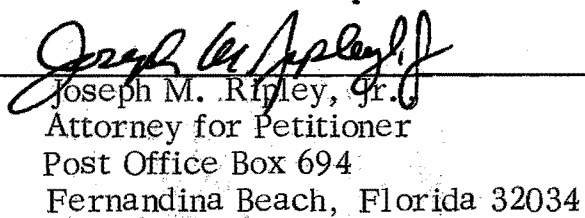 Joseph M. Ripley, Jr.
Joseph M. Ripley, Jr.,
Attorney for Petitioner
Post Office Box 694
Fernandina Beach, Florida 32034